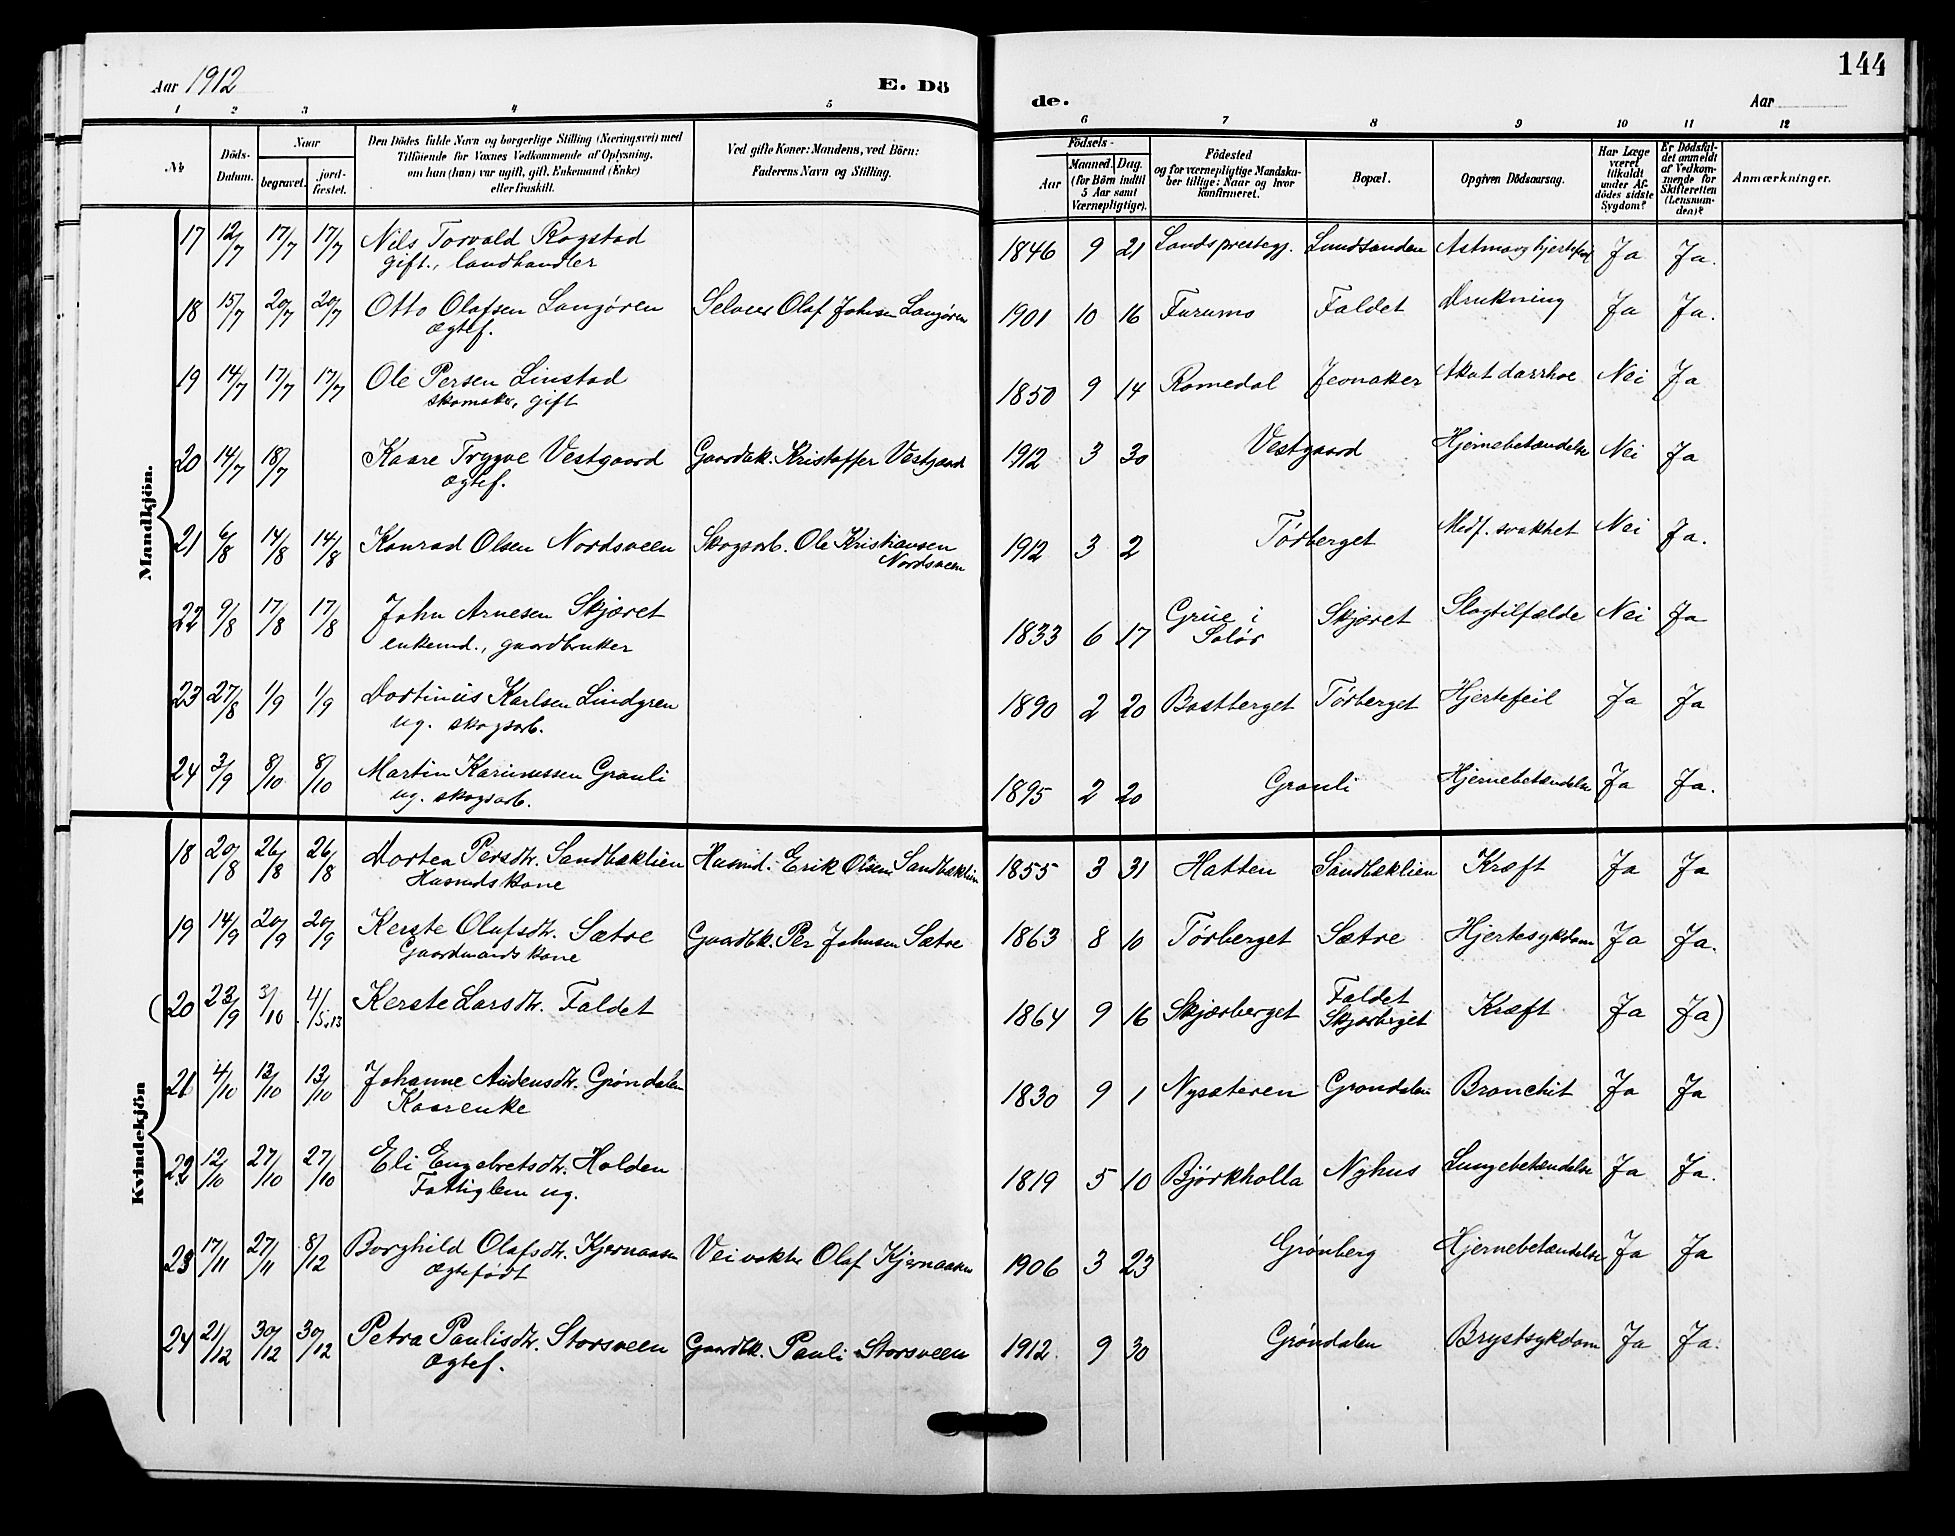 Aar 1912
E. Dö
de.
Aar
144
1 2 3 4 5 6 7 8 9 10 11 12
No
Döds-Datum.
Naar
begravet.
jordfæstet.
Den Dödes fulde Navn og borgerlige Stilling (Næringsvei) med
Tilföiende for Voxnes Vedkommende af Oplysning,
om hun (han) var ugift, gift, Enkemand (Enke)
eller fraskilt.
Ved gifte Koner: Mandens, ved Börn:
Faderens Navn og Stilling.
Födsels-
Aar
Maaned. Dag.
(for Börn indtil
5 Aar samt
Værnepligtige).
Födested
og for værnepligtige Mandska-
ber tillige: Naar og hvor
konfirmeret.
Bopæl.
Opgiven Dödsaarsag.
Har Læge
været
tilkaldt
under Af-
dödes sidste
Sygdom?
Er Dödsfal-
det anmeldt
af Vedkom-
mende for
Skifteretten
(Lensman-
den)?
Anmærkninger.
Mandkjön.
17 12/7 17/7 17/7 Nils Torvald Rogstad 1846 9 21 Landsprestegj. Lundsanden Astma og hjertefeil Ja Ja.
gift., landhandler
18 15/7 20/7 20/7 Otto Olafsen Langören Selveer Olaf Johnsen Langören 1901 10 16 Furumo Faldet Drukning Ja Ja.
Ægtef.
19 14/7 17/7 17/7 Ole Persen Linstad 1850 9 14 Romedal Jevnaker Akut darrhoe Nei Ja
skomaker, gift
20 14/7 18/7 Kaare Trygve Vestgaard Gaardbk. Kristoffer Vestgaard 1912 3 30 Vestgaard Hjernebetændelse Nei Ja
Ægtef.
21 6/8 14/8 14/8 Konrad Olsen Nordsveen Skogsarb. Ole Kristiansen 1912 3 2 Törberget Medf. svakhet Nei Ja.
Nordsveen
22 9/8 17/8 17/8 John Arnesen Skjæret 1833 6 17 Grue i Skjæret Slagtilfælde Nei Ja
enkemd., gaardbruker Solör
23 27/8 1/9 1/9 Dortinius Karlsen Lindgren 1890 2 20 Bastberget Törberget Hjertefeil Ja Ja
ug. skogsarb.
24 3/9 8/10 8/10 Martin Karinusen Granli 1895 2 20 Granli Hjernebetændelse Ja Ja.
ug. skogsarb.
Kvindekjön
18 20/8 26/8 26/8 Dortea Persdtr. Sandbæklien Husmd. Erik Olsen Sandbæklien 1855 3 31 Hatten Sandbæklien Kræft Ja Ja
Husmdskone
19 14/9 20/9 20/9 Kerste Olafsdtr. Sætre Gaardbk. Per Johnsen Sætre 1863 8 10 Törberget Sætre Hjertesykdom Ja Ja.
Gaardmandskone
(20 23/9 3/10 4/5.13 Kerste Larsdtr. Faldet 1864 9 16 Skjærberget Faldet Kræft Ja Ja)
Skjærberget
21 4/10 13/10 13/10 Johanne Audensdtr. Gröndalen 1830 9 1 Nysæteren Gröndalen Bronchit Ja Ja
Kaarenke
22 12/10 27/10 27/10 Eli Engebretsdtr. Holden 1819 5 10 Björkholla Nyhus Lungebetændelse Ja Ja.
Fattiglem ug.
23 17/11 27/11 8/12 Borghild Olafsdtr. Kjernaasen Veivokter Olaf Kjernaasen 1906 3 23 Grönberg Hjernebetændelse Ja Ja
Ægtefödt
24 21/12 30/12 30/12 Petra Paulisdtr. Storsveen Gaardbk. Pauli Storsveen 1912. 9 30 Gröndalen Brystsykdom Ja Ja.
Ægtef.